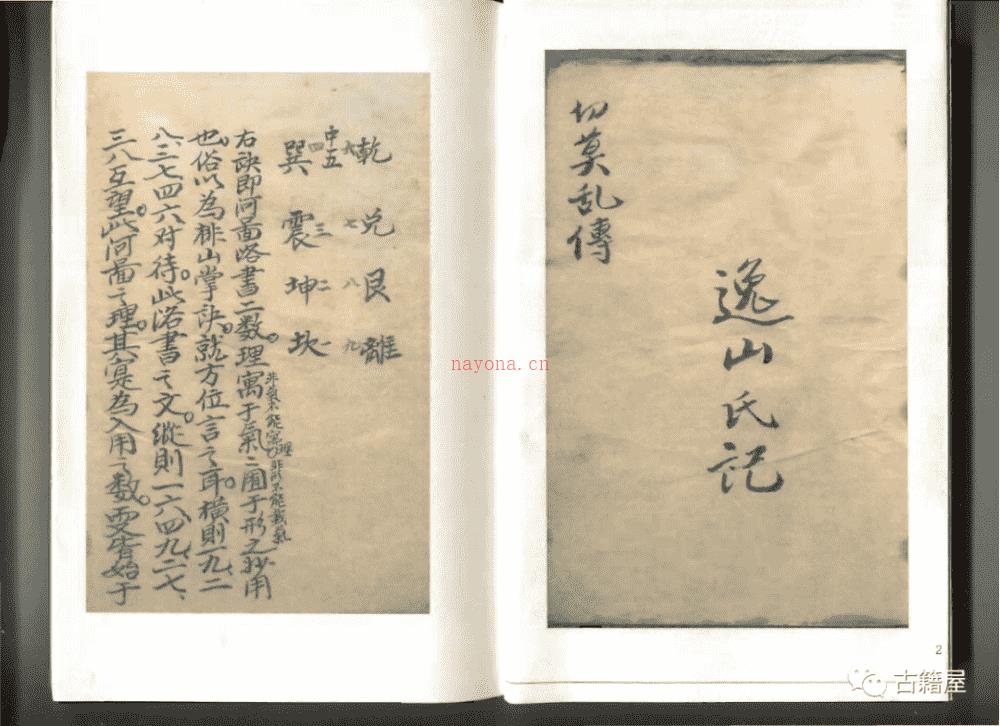 切莫乱傳
逸山氏記
2
乾六 兑七 艮八 離九
中五
巽四 震三 坤二 坎一
右訣即河啚洛書二数。理寓于氣、氣囿于形之妙用
非氣不能寓理 非形不能載氣
也。俗以為排山掌訣。就方位言之耳。橫則一九、二
八、三七、四六对待。此洛書之文。縱則一六、四九、二七、
三八互望。此河啚之理。其寔為入用之数。要皆始于
nayona.cn
古籍屋